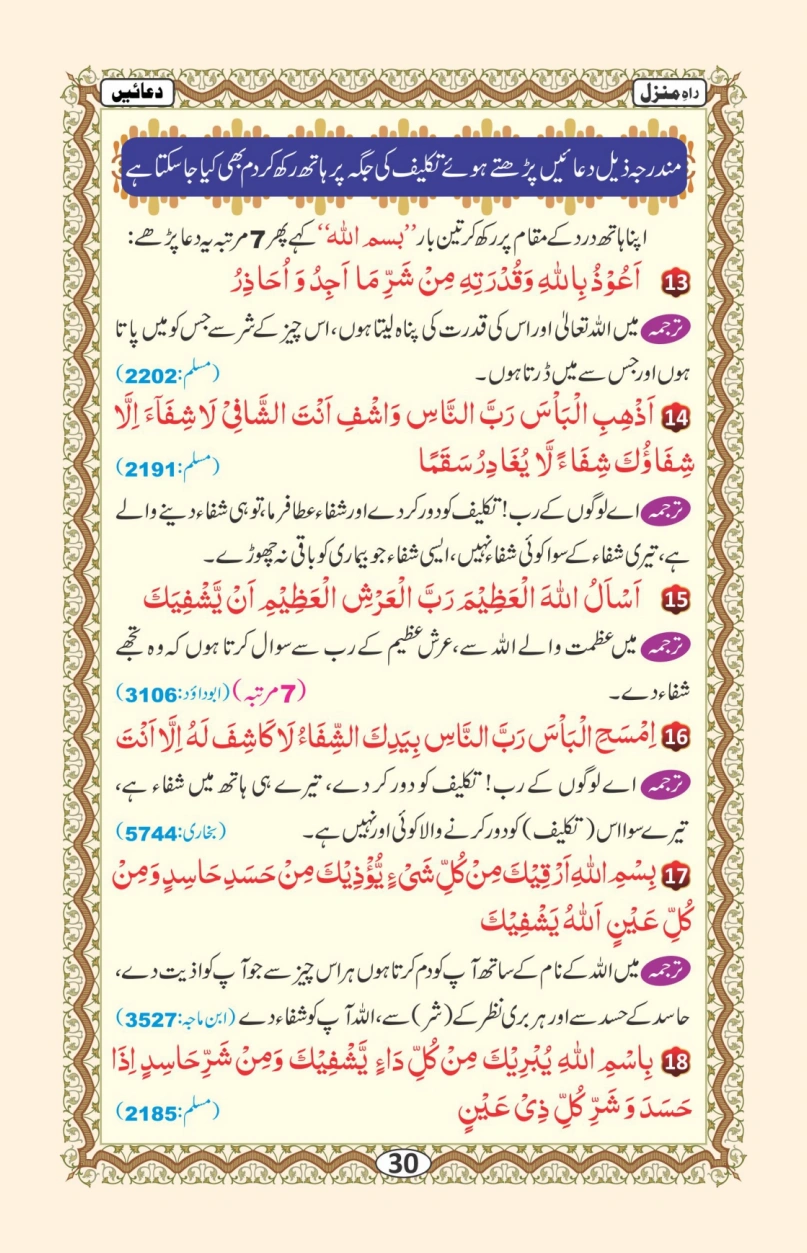 راہِ منزل
دعائیں
مندرجہ ذیل دعائیں پڑھتے ہوئے تکلیف کی جگہ پر ہاتھ رکھ کر دم بھی کیا جا سکتا ہے
اپنا ہاتھ درد کے مقام پر رکھ کر تین بار ”بسم اللہ“ کہے پھر 7 مرتبہ یہ دعا پڑھے:
13 اَعُوْذُ بِاللّٰهِ وَقُدْرَتِهٖ مِنْ شَرِّ مَا اَجِدُ وَ اُحَاذِرُ
ترجمہ میں اللہ تعالیٰ اور اس کی قدرت کی پناہ لیتا ہوں، اس چیز کے شر سے جس کو میں پاتا
ہوں اور جس سے میں ڈرتا ہوں۔ (مسلم:2202)
14 اَذْهِبِ الْبَأْسَ رَبَّ النَّاسِ وَاشْفِ اَنْتَ الشَّافِیْ لَا شِفَآءَ اِلَّا
شِفَاؤُكَ شِفَاءً لَّا یُغَادِرُ سَقَمًا (مسلم:2191)
ترجمہ اے لوگوں کے رب! تکلیف کو دور کر دے اور شفاء عطا فرما، تو ہی شفاء دینے والے
ہے، تیری شفاء کے سوا کوئی شفاء نہیں، ایسی شفاء جو بیماری کو باقی نہ چھوڑے۔
15 اَسْاَلُ اللّٰهَ الْعَظِیْمَ رَبَّ الْعَرْشِ الْعَظِیْمِ اَنْ یَّشْفِیَكَ
ترجمہ میں عظمت والے اللہ سے، عرش عظیم کے رب سے سوال کرتا ہوں کہ وہ تجھے
شفاء دے۔ (7 مرتبہ) (ابوداؤد:3106)
16 اِمْسَحِ الْبَأْسَ رَبَّ النَّاسِ بِیَدِكَ الشِّفَاءُ لَا كَاشِفَ لَهٗ اِلَّا اَنْتَ
ترجمہ اے لوگوں کے رب! تکلیف کو دور کر دے، تیرے ہی ہاتھ میں شفاء ہے،
تیرے سوا اس (تکلیف) کو دور کرنے والا کوئی اور نہیں ہے۔ (بخاری:5744)
17 بِسْمِ اللّٰهِ اَرْقِیْكَ مِنْ كُلِّ شَیْءٍ یُّؤْذِیْكَ مِنْ حَسَدِ حَاسِدٍ وَمِنْ
كُلِّ عَیْنٍ اَللّٰهُ یَشْفِیْكَ
ترجمہ میں اللہ کے نام کے ساتھ آپ کو دم کرتا ہوں ہر اس چیز سے جو آپ کو اذیت دے،
حاسد کے حسد سے اور ہر بری نظر کے (شر) سے، اللہ آپ کو شفاء دے (ابن ماجہ:3527)
18 بِاسْمِ اللّٰهِ یُبْرِیْكَ مِنْ كُلِّ دَاءٍ یَّشْفِیْكَ وَمِنْ شَرِّ حَاسِدٍ اِذَا
حَسَدَ وَ شَرِّ كُلِّ ذِیْ عَیْنٍ (مسلم:2185)
30